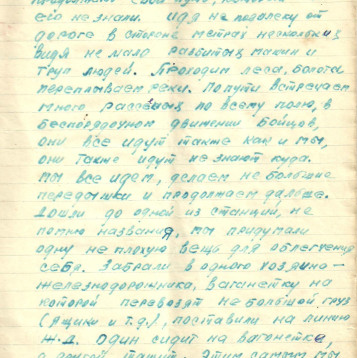 его не знали. Идя не подалеку от
дороге в стороне метрах нескольких
видя не мало разбитых машин и
труп людей. Проходим леса, болота
переплываем реки. По пути встречаем
много рассеяных по всему полю, в
беспорядочном движении бойцов,
они все идут также как и мы,
они также идут не знают куда.
Мы все идем, делаем не большие
передышки и продолжаем дальше.
Дошли до одной из станций, не
помню названия, мы придумали
одну не плохую вещь для облегчения
себя. Забрали в одного хозяина-
железнодорожника, вагонетку на
которой перевозят не большой груз
(Ящики и т.д.), поставили на линию
Ж.Д. Один сидит на вагонетке,
а другой тащит. Этим самым мы